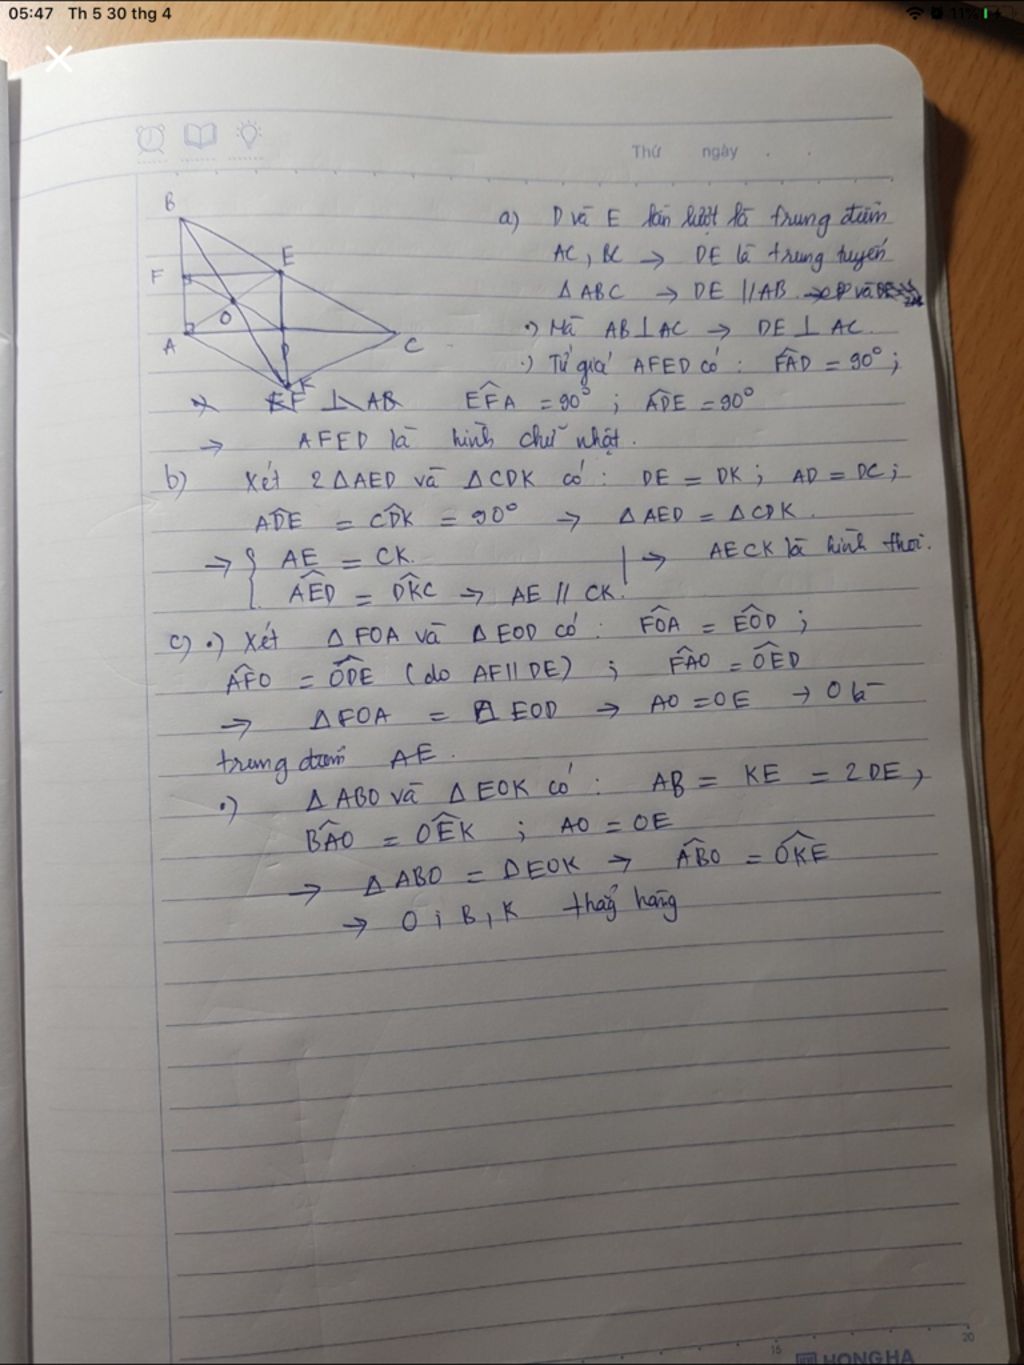 05:47 Th 5 30 thg 4
11%
Thứ ngày . .
B
F
E
O
A
D
C
K
a) D và E lần lượt là trung điểm
AC, BC → DE là trung tuyến
Δ ABC → DE // AB
.) Mà AB ⊥ AC → DE ⊥ AC.
.) Tứ giác AFED có : FAD = 90° ;
EF ⊥ AB EFA = 90° ; ADE = 90°
→ AFED là hình chữ nhật.
b) Xét 2 Δ AED và Δ CDK có : DE = DK ; AD = DC ;
ADE = CDK = 90° → Δ AED = Δ CDK.
→ { AE = CK. | → AECK là hình thoi.
AED = DKC → AE // CK.
c) .) Xét Δ FOA và Δ EOD có : FOA = EOD ;
AFO = ODE (do AF // DE) ; FAO = OED
→ Δ FOA = Δ EOD → AO = OE → O là
trung điểm AE.
.) Δ ABO và Δ EOK có : AB = KE = 2DE,
BAO = OEK ; AO = OE
→ Δ ABO = Δ EOK → ABO = OKE
→ O ; B, K thẳng hàng
15 20
HONG HA